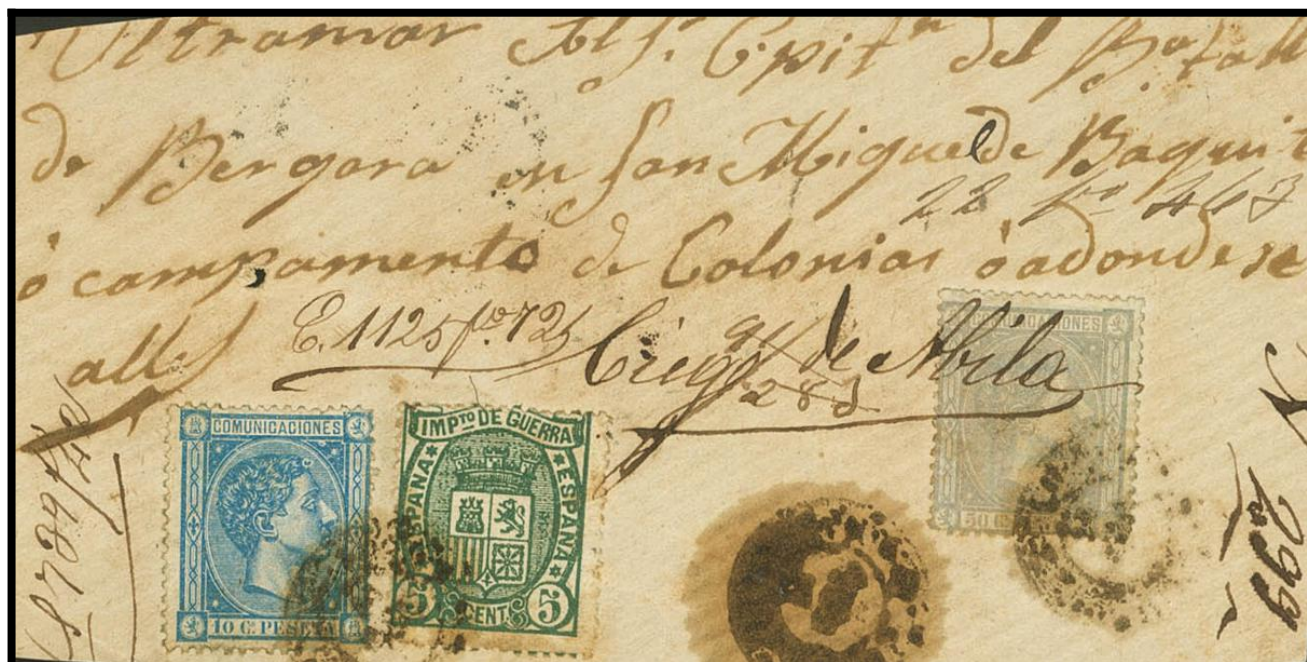 Ultramar Al Sr. Cpitn del Batall
de Bergara en San Miguel de Baguit
22 fo 463
ó campamento de Colonias ó adonde se
alle
E. 1125 fo. 725
Ciego de Abila
283
COMUNICACIONES
10 C. PESETA
IMPTO DE GUERRA
ESPAÑA
ESPAÑA
5 CENT. 5
COMUNICACIONES
50 C.
299